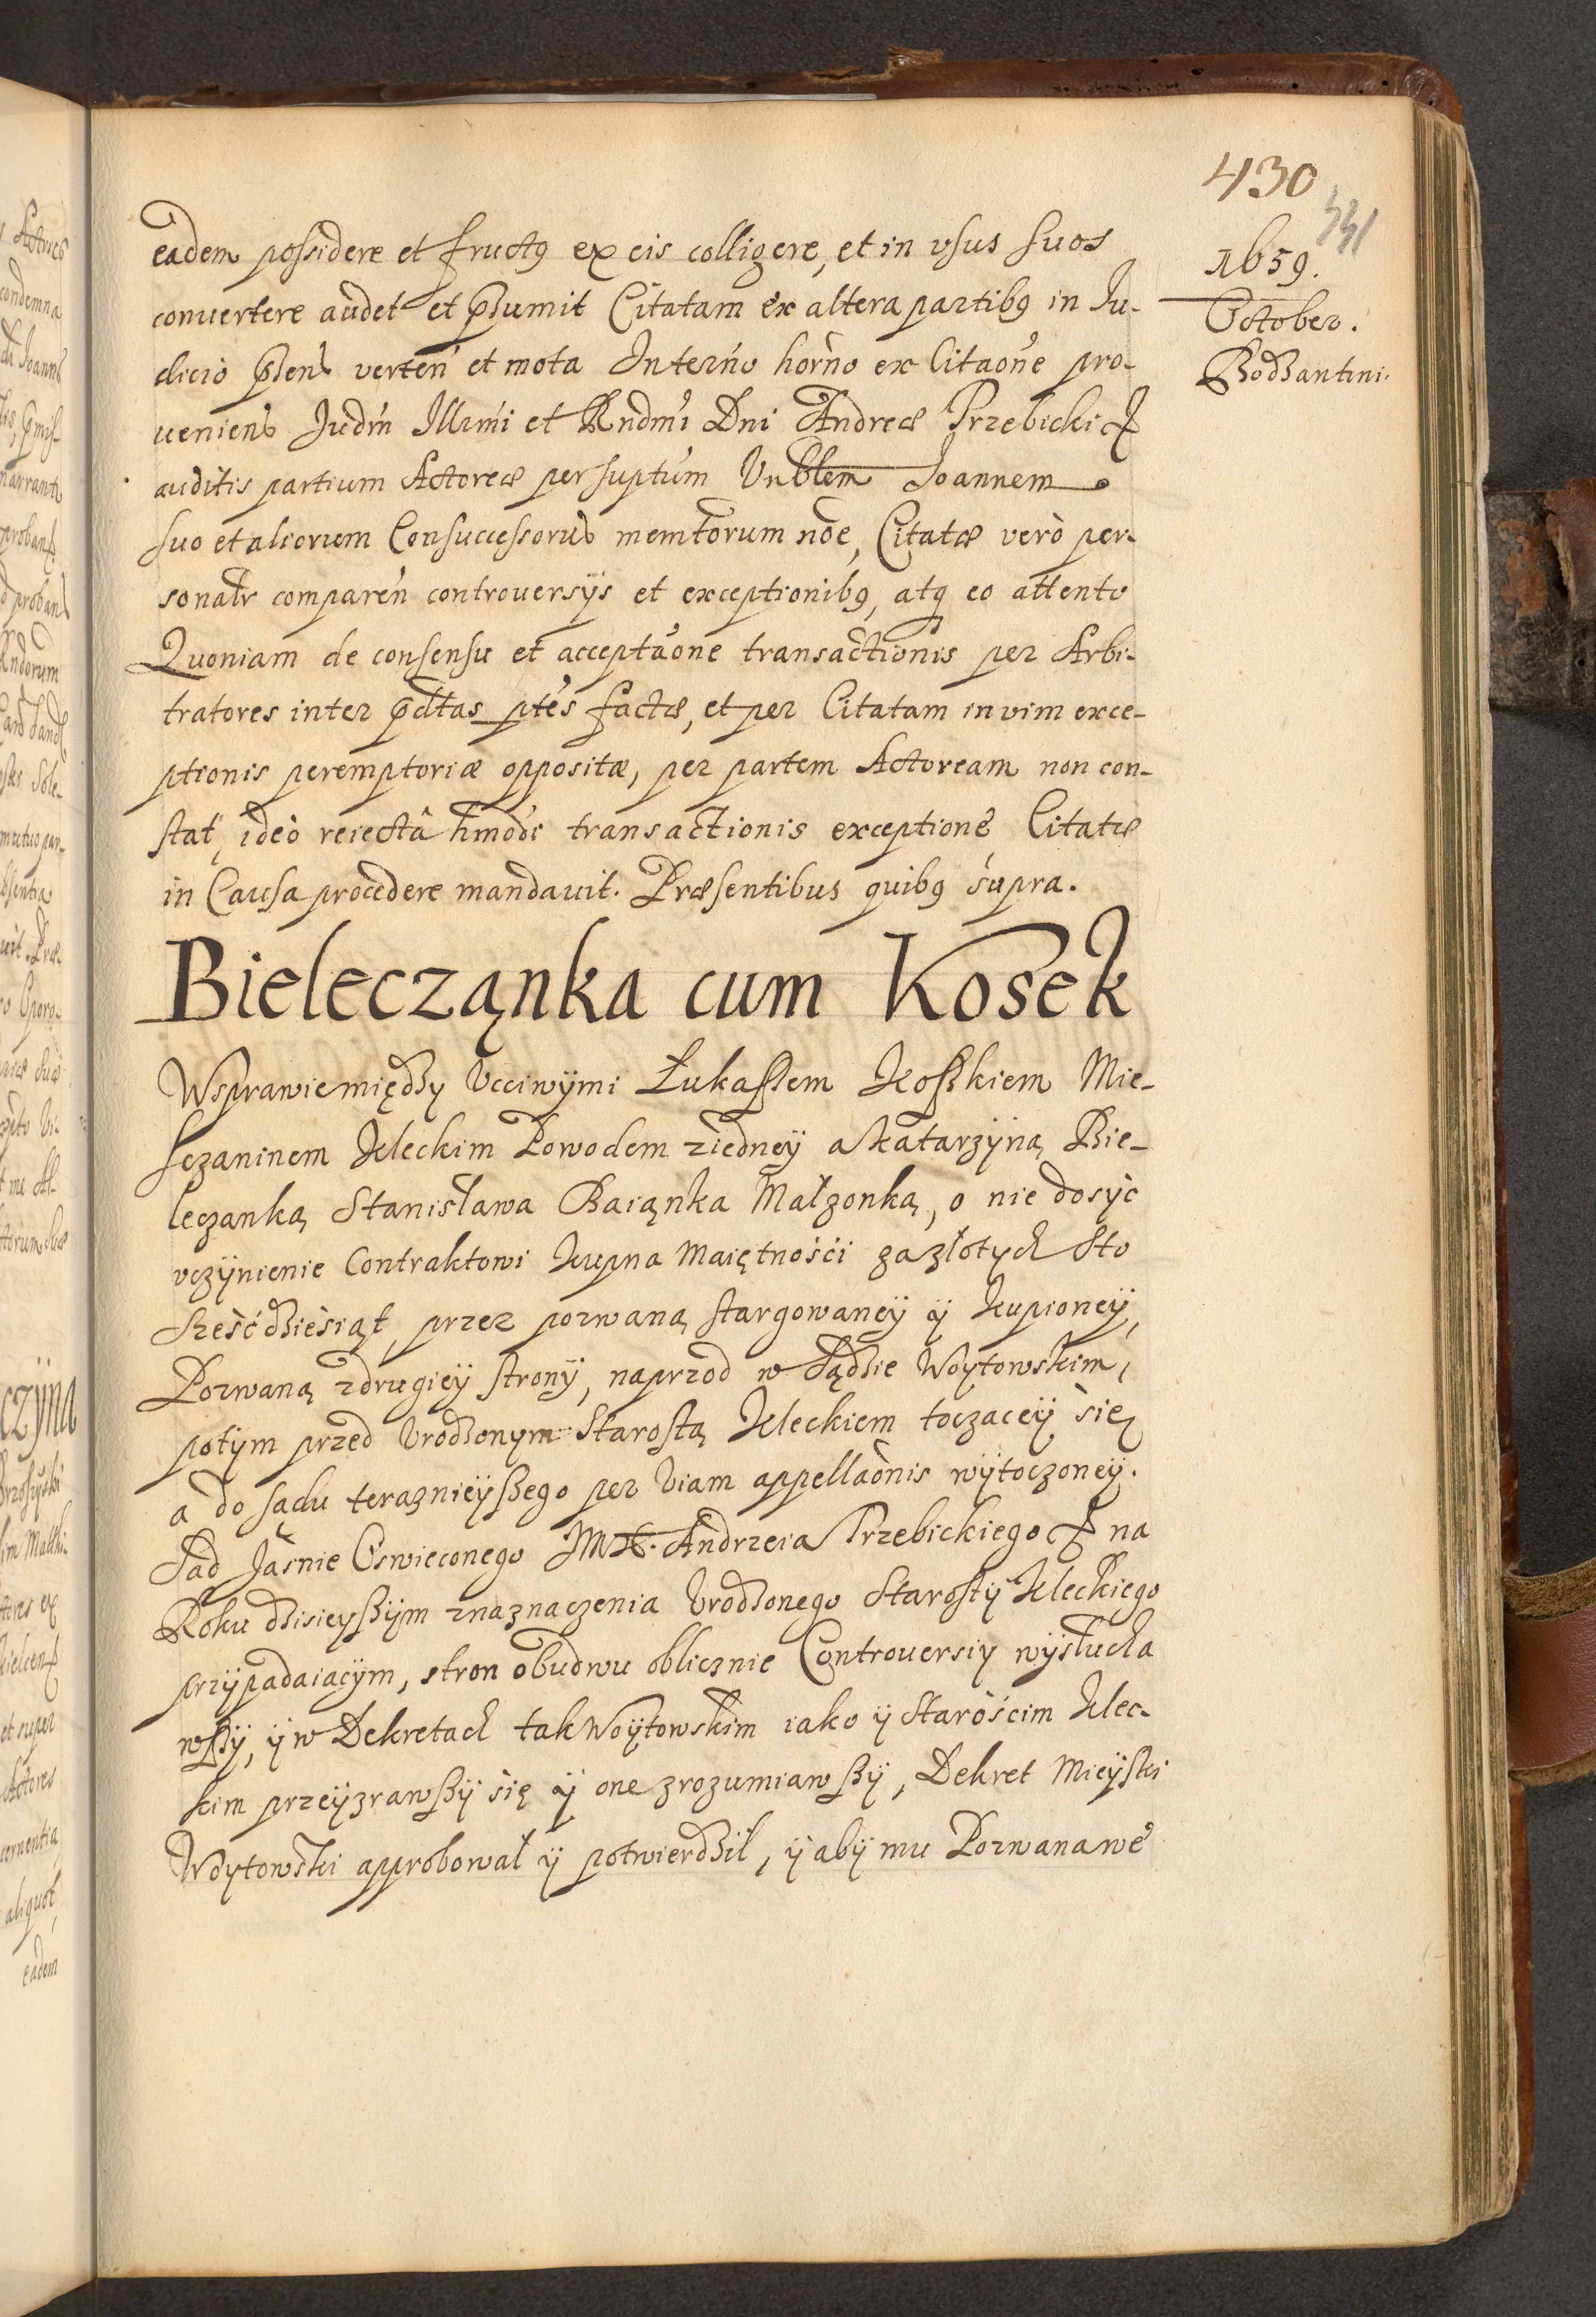 430
331
1659.
October.
Bodzantini.
eadem possidere et fructus ex eis colligere, et in vsus suos
conuertere audet et pręsumit Citatam ex altera partibus in Ju-
dicio pręsens verteñ et mota Interño horño ex Citaõne pro-
ueniens Judm̃ Illmĩ et Rndmĩ Dni Andreæ Trzebicki &
auditis partium Actoreæ per suptũm Vnblem Joannem
suo et aliorum Consuccessorũ memtorum nõe, Citatæ verò per-
sonalr compareñ controuersÿs et exceptionibus, atq eo attento
Quoniam de consensu et acceptaõne transactionis per Arbi-
tratores inter prędtas ptes factæ, et per Citatam in vim exce-
ptionis peremptoriæ oppositæ, per partem Actoream non con-
stat, ideò reiectâ hmõdi transactionis exceptione Citatæ
in Causa procedere mandauit. Præsentibus quibus supra.
Bieleczanka cum Kosek
W sprawie między Vcciwÿmi Łukaszem Koszkiem Mie-
sczaninem Kieleckim Powodem ziedneÿ a Katarzÿną Bie-
leczanką Stanisława Baiąnka Małzonką, o nie dosÿc
vczÿnienie Contraktowi Kupna Maiętności za złotych Sto
Sześćdziesiąt, przez pozwaną stargowaneÿ ÿ Kupioneÿ,
Pozwaną zdrugieÿ stronÿ, naprzod w Sądzie Woÿtowskim,
potÿm przed Vrodzonym Starostą Kieleckiem toczaceÿ się
a do sądu teraznieÿszego per Viam appellaõnis wÿtoczoneÿ.
Sąd Jaśnie Oswieconego JMX. Andrzeia Trzebickiego & na
Roku dzisieyszÿm znaznaczenia Vrodzonego Starostÿ Kieleckiego
przÿpadaiącÿm, stron obudwu oblicznie Controuersiy wÿsłucha
wszÿ, ÿ w Dekretach tak Woÿtowskim iako ÿ Starościm Kielec-
kim przeÿzrawszÿ się ÿ one zrozumiawszÿ, Dekret Mieÿski
Woytowski approbował ÿ potwierdził, ÿ abÿ mu Pozwana we